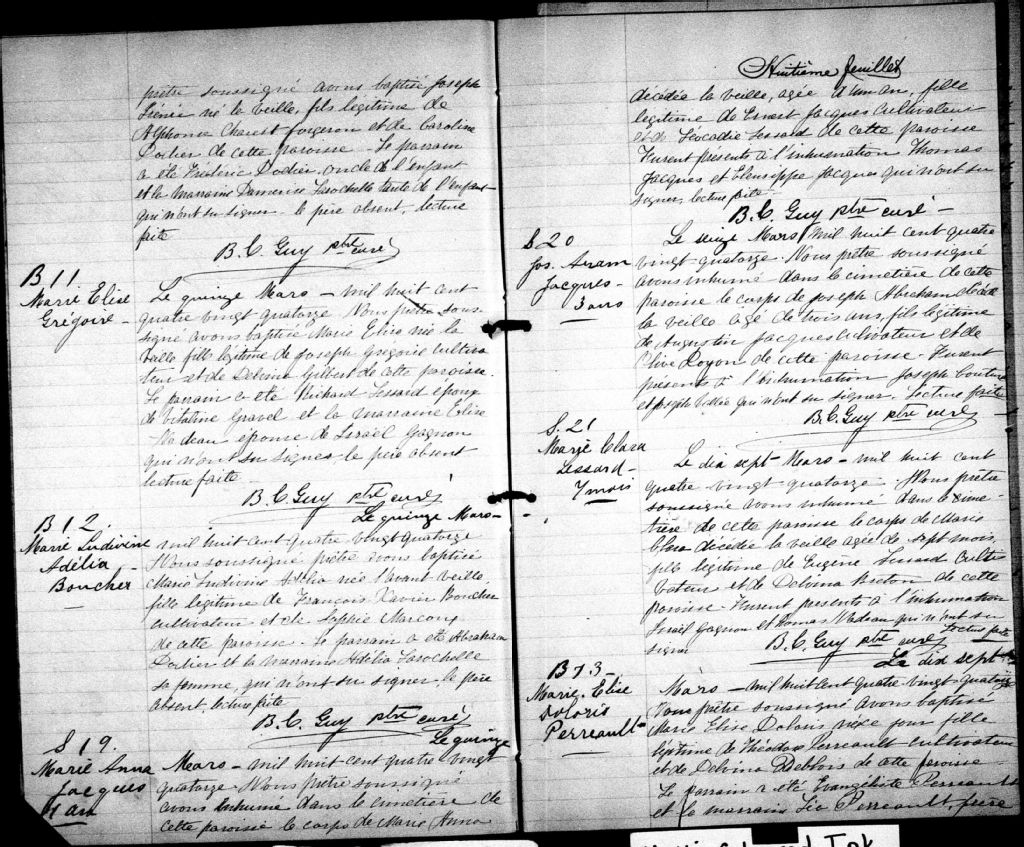 prêtre soussigné avons baptisé Joseph
né la veille, fils légitime de
Alphonse Charest forgeron et de Caroline
Dodier de cette paroisse. Le parrain
a été Frédéric Dodier oncle de l'enfant
et la marraine Damerise Larochelle tante de l'enfant
qui n'ont su signer. le père absent, lecture
faite
B. C. Guy ptre curé
B 11.
Marie Elise
Grégoire -
Le quinze Mars - mil huit cent
quatre vingt quatorze Nous prêtre sous-
signé avons baptisé Marie Elise née la
veille fille légitime de Joseph Grégoire cultiva
teur et de Delvina Gilbert de cette paroisse.
Le parrain a été Richard Lessard époux
de Vitaline Gravel et la marraine Elise
Nadeau épouse de Israël Gagnon
qui n'ont su signer, le père absent
lecture faite
B. C. Guy ptre curé
B 12.
Marie Ludivine
Adélia -
Boucher
Le quinze Mars -
mil huit cent quatre vingt quatorze
Nous soussigné prêtre avons baptisé
Marie Ludivine Adélia née l'avant veille,
fille légitime de François Xavier Boucher
cultivateur et de Sophie Marcoux
de cette paroisse. Le parrain a été Abraham
Dodier et la marraine Adélia Larochelle
sa femme, qui n'ont su signer. le père
absent, lecture faite
B. C. Guy ptre curé
S 19.
Marie Anna
Jacques
1 an
Le quinze
Mars - mil huit cent quatre vingt
quatorze - Nous prêtre soussigné
avons inhumé dans le cimetière de
cette paroisse le corps de Marie Anna
Huitième feuillet
décédée la veille, agée d'un an, fille
légitime de Ernest Jacques cultivateur
et de Léocadie Lessard de cette paroisse
Furent présents à l'inhumation Thomas
Jacques et Jacques qui n'ont su
signer, lecture faite
B. C. Guy ptre curé -
S. 20
Jos. Abram
Jacques -
3 ans
Le seize Mars, mil huit cent quatre
vingt quatorze. Nous prêtre soussigné
avons inhumé dans le cimetière de cette
paroisse le corps de Joseph Abraham décédé
la veille agé de trois ans, fils légitime
de Augustin Jacques cultivateur et de
Olive Doyon de cette paroisse. Furent
présents à l'inhumation Joseph Couture
et Joseph qui n'ont su signer. Lecture faite
B. C. Guy ptre curé
S. 21
Marie Clara
Lessard -
7 mois
Le dix sept Mars - mil huit cent
quatre vingt quatorze. Nous prêtre
soussigné avons inhumé dans le cime-
tière de cette paroisse le corps de Marie
Clara décédée la veille agée de sept mois,
fille légitime de Eugène Lessard culti
vateur et de Delvina de cette
paroisse. Furent présents à l'inhumation
Israël Gagnon et Thomas Nadeau qui n'ont su
signer Lecture faite
B. C. Guy ptre curé
B 13 -
Marie. Elise
Doloris
Perreault -
Le dix sept
Mars - mil huit cent quatre-vingt quatorze
Nous prêtre soussigné avons baptisé
Marie Elise Doloris née ce jour fille
légitime de Théodore Perreault cultivateur
et de Delvina Deblois de cette paroisse
Le parrain a été Evangéliste Perreault
et la marraine Léa Perreault, frère